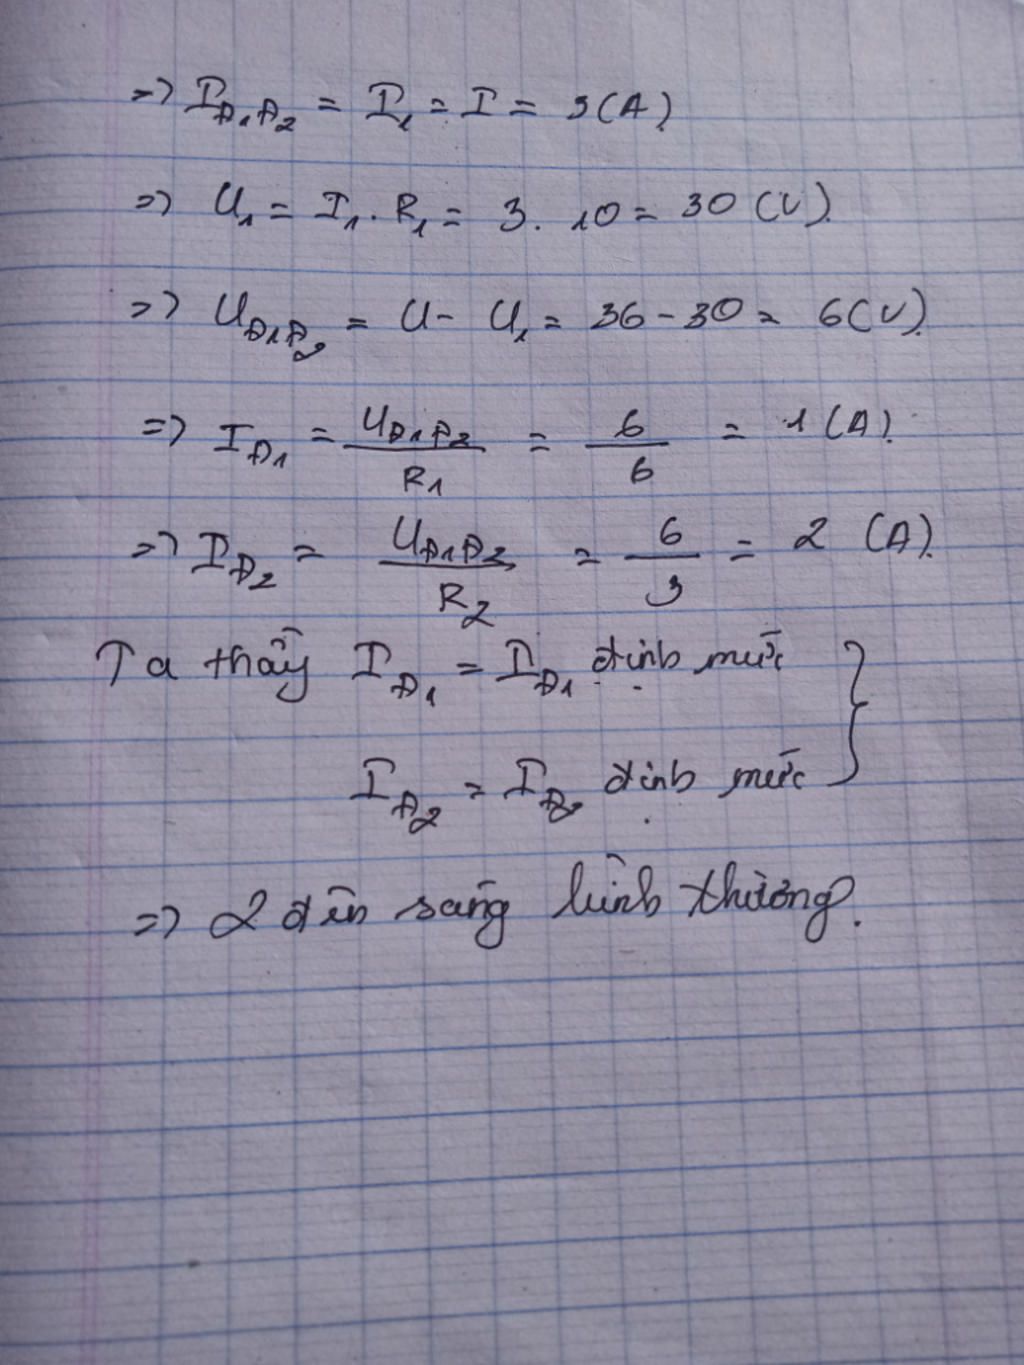 => I_Đ1Đ2 = I_1 = I = 3(A).
=> U_1 = I_1 . R_1 = 3. 10 = 30 (V).
=> U_Đ1Đ2 = U - U_1 = 36 - 30 = 6(V).
=> I_Đ1 = U_Đ1Đ2 / R_1 = 6 / 6 = 1 (A).
=> I_Đ2 = U_Đ1Đ2 / R_2 = 6 / 3 = 2 (A).
Ta thấy I_Đ1 = I_Đ1 định mức }
I_Đ2 = I_Đ2 định mức
=> 2 đèn sáng bình thường.